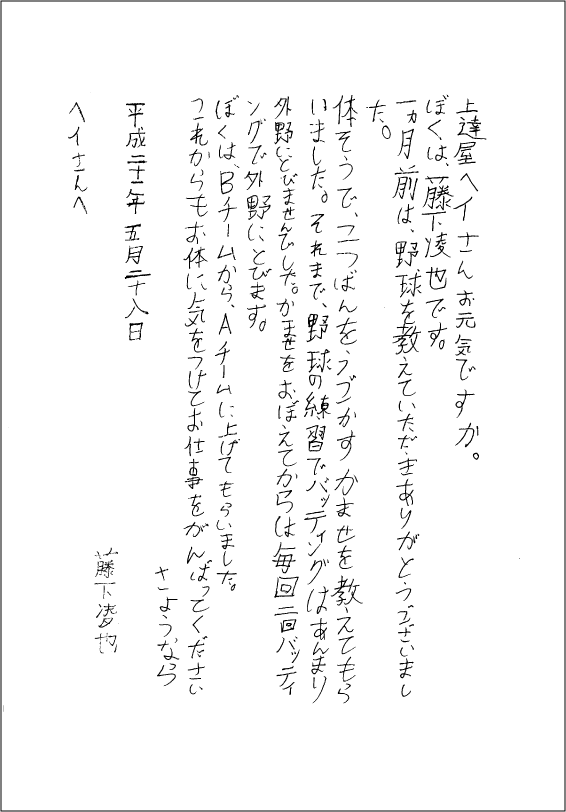 上達屋ヘイさんお元気ですか。
ぼくは、藤下凌也です。
一ヵ月前は、野球を教えていただきありがとうございまし
た。
体そうで、こつばんをうごかすかませを教えてもら
いました。それまで、野球の練習でバッティングはあんまり
外野にとびませんでした。かませをおぼえてからは毎回二回バッティ
ングで外野にとびます。
ぼくは、Bチームから、Aチームに上げてもらいました。
これからもお体に気をつけてお仕事をがんばってください
さようなら
平成二十一年五月二十八日
藤下凌也
ヘイさんへ